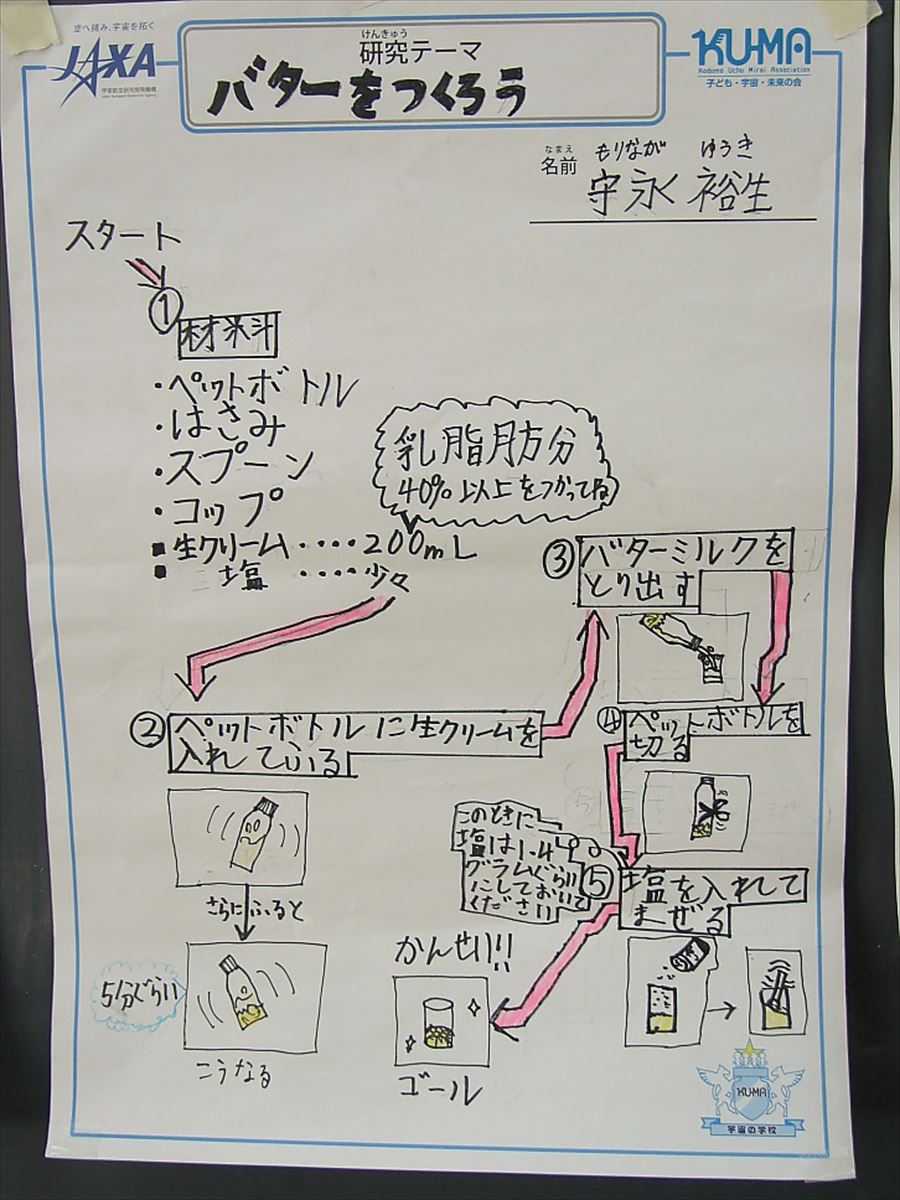 空へ挑み、宇宙を拓く
JAXA
宇宙航空研究開発機構
Japan Aerospace Exploration Agency
けんきゅう
研究テーマ
バターをつくろう
KU-MA
Kodomo Uchu Mirai Association
子ども・宇宙・未来の会
なまえ
名前
もりなが ゆうき
守永 裕生
スタート
①
材料
・ペットボトル
・はさみ
・スプーン
・コップ
■生クリーム・・・・200mL
■塩・・・・少々
乳脂肪分
40%以上をつかってね
②ペットボトルに生クリームを
入れてふる
さらにふると
5分ぐらい
こうなる
③バターミルクを
とり出す
④ペットボトルを
切る
このときに
塩は1.4
グラムぐらい
にしておいて
ください
⑤塩を入れて
まぜる
かんせい!!
ゴール
KU-MA
宇宙の学校